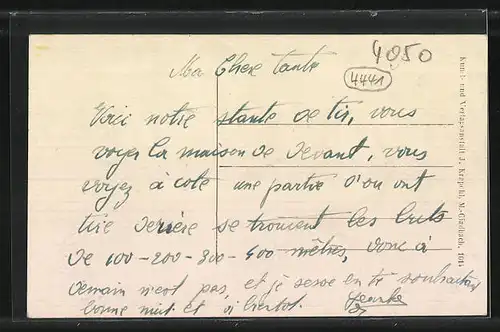 4050
Ma Chere tante
4441
Voici notre stante de tir, vous
voyez la maison de devant, vous
voyez à coté une partie d'ou ont
tire deriere se trouvent les buts
de 100-200-300-400 mètres, donc à
demain n'est pas, et je serve en te souhaitant
bonne nuit et à bientot.
Kunst- und Verlagsanstalt J. M.-Gladbach, 191